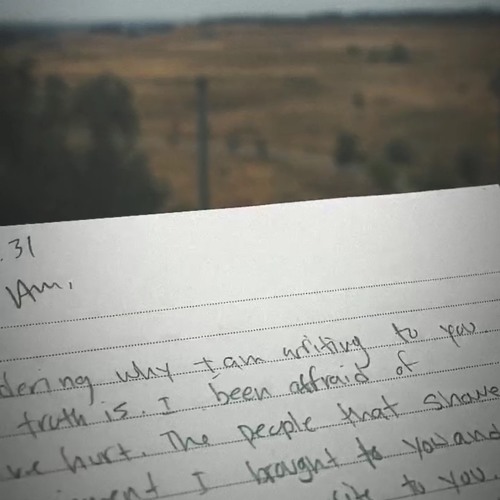 .31
Am,
dering why I am writing to you
truth is. I been affraid of
ve hurt. The people that share
ment I brought to you and
to you